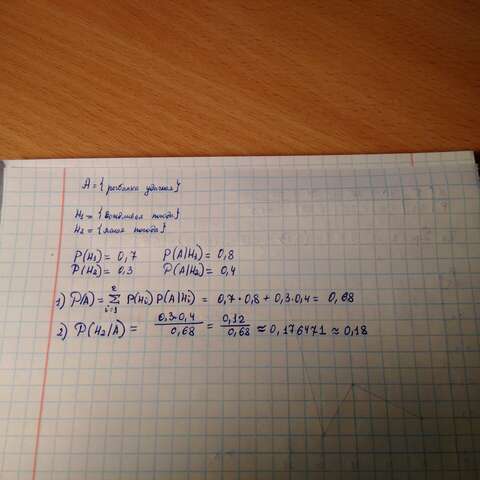 A = { рыбалка удачная }
H₁ = { дождливая погода }
H₂ = { ясная погода }
P(H₁) = 0,7 P(A|H₁) = 0,8
P(H₂) = 0,3 P(A|H₂) = 0,4
1) P(A) = ∑ᵢ₌₁² P(Hᵢ) P(A|Hᵢ) = 0,7 · 0,8 + 0,3·0,4 = 0,68
2) P(H₂/A) = 0,3·0,4 / 0,68 = 0,12 / 0,68 ≈ 0,176471 ≈ 0,18